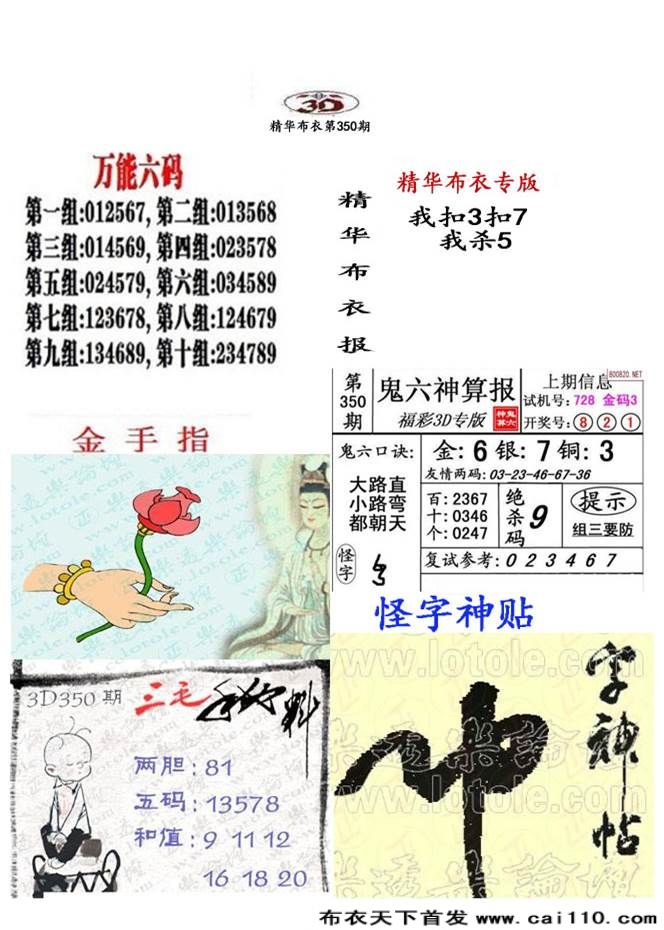 3D
精华布衣第350期
万能六码
第一组:012567, 第二组:013568
第三组:014569, 第四组:023578
第五组:024579, 第六组:034589
第七组:123678, 第八组:124679
第九组:134689, 第十组:234789
精华布衣报
精华布衣专版
我扣3扣7
我杀5
第350期
鬼六神算报
福彩3D专版
鬼六神算
上期信息
B00820.NET
试机号: 728 金码3
开奖号: 8 2 1
鬼六口诀:
大路直
小路弯
都朝天
怪字
金: 6 银: 7 铜: 3
友情两码: 03-23-46-67-36
百: 2367
十: 0346
个: 0247
绝杀码 9
提示
组三要防
复试参考: 0 2 3 4 6 7
金手指
www.lotole.com
怪字神贴
3D350 期
三毛
料
两胆: 81
五码: 13578
和值: 9 11 12
16 18 20
字神帖
www.lotole.com
布衣天下首发 www.cai110.com